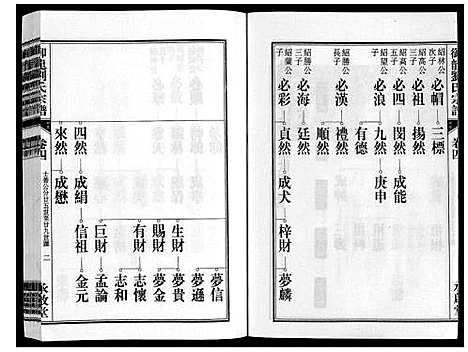 御龍劉氏宗譜
卷四
紹林公次子
必帽
三標
紹高公子
必祖
揚然
紹高公三子
必四
閔然
成能
必浪
九然
庚申
有德
紹勝公長子
必漢
禮然
順然
紹勝公三子
必海
廷然
紹蘭公子
必彩
貞然
成犬
梓財
夢麟
夢信
夢遜
生財
夢貴
賜財
夢金
有財
志懷
志和
巨財
孟論
四然
成絹
信祖
金元
來然
成戀
御龍劉氏宗譜
卷四
二
永敬堂